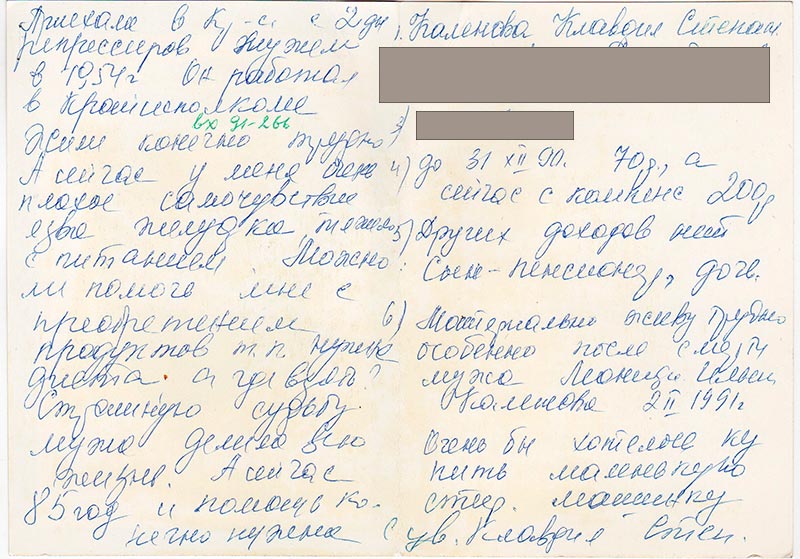 Приехала в Кр-ск с 2 дн
репрессиров мужем
в 1954г Он работал
в Крайисполкоме
вх 91-266
Жили конечно трудно
А сейчас у меня очень
плохое самочувствие
язва желудка тяжело
с питанием Можно
ли помочь мне с
преобретением
продуктов т.п. нужна
диета. а где взять?
Страшную судьбу
мужа делила всю
жизнь. А сейчас
85 год и помощь ко-
нечно нужена
1. Каленова Клавдия Степан.
3)
4) до 31 XII 90. 70р., а
сейчас с компенс 200р
5) Других доходов нет
Сын-пенсионер, дочь.
6) Материально живу трудно
особенно после смерти
мужа Леонида Ильи
Каленова 2 II 1991г
Очень бы хотелось ку
пить маленькую
стир. машинку
С ув. Клавдия Степ.